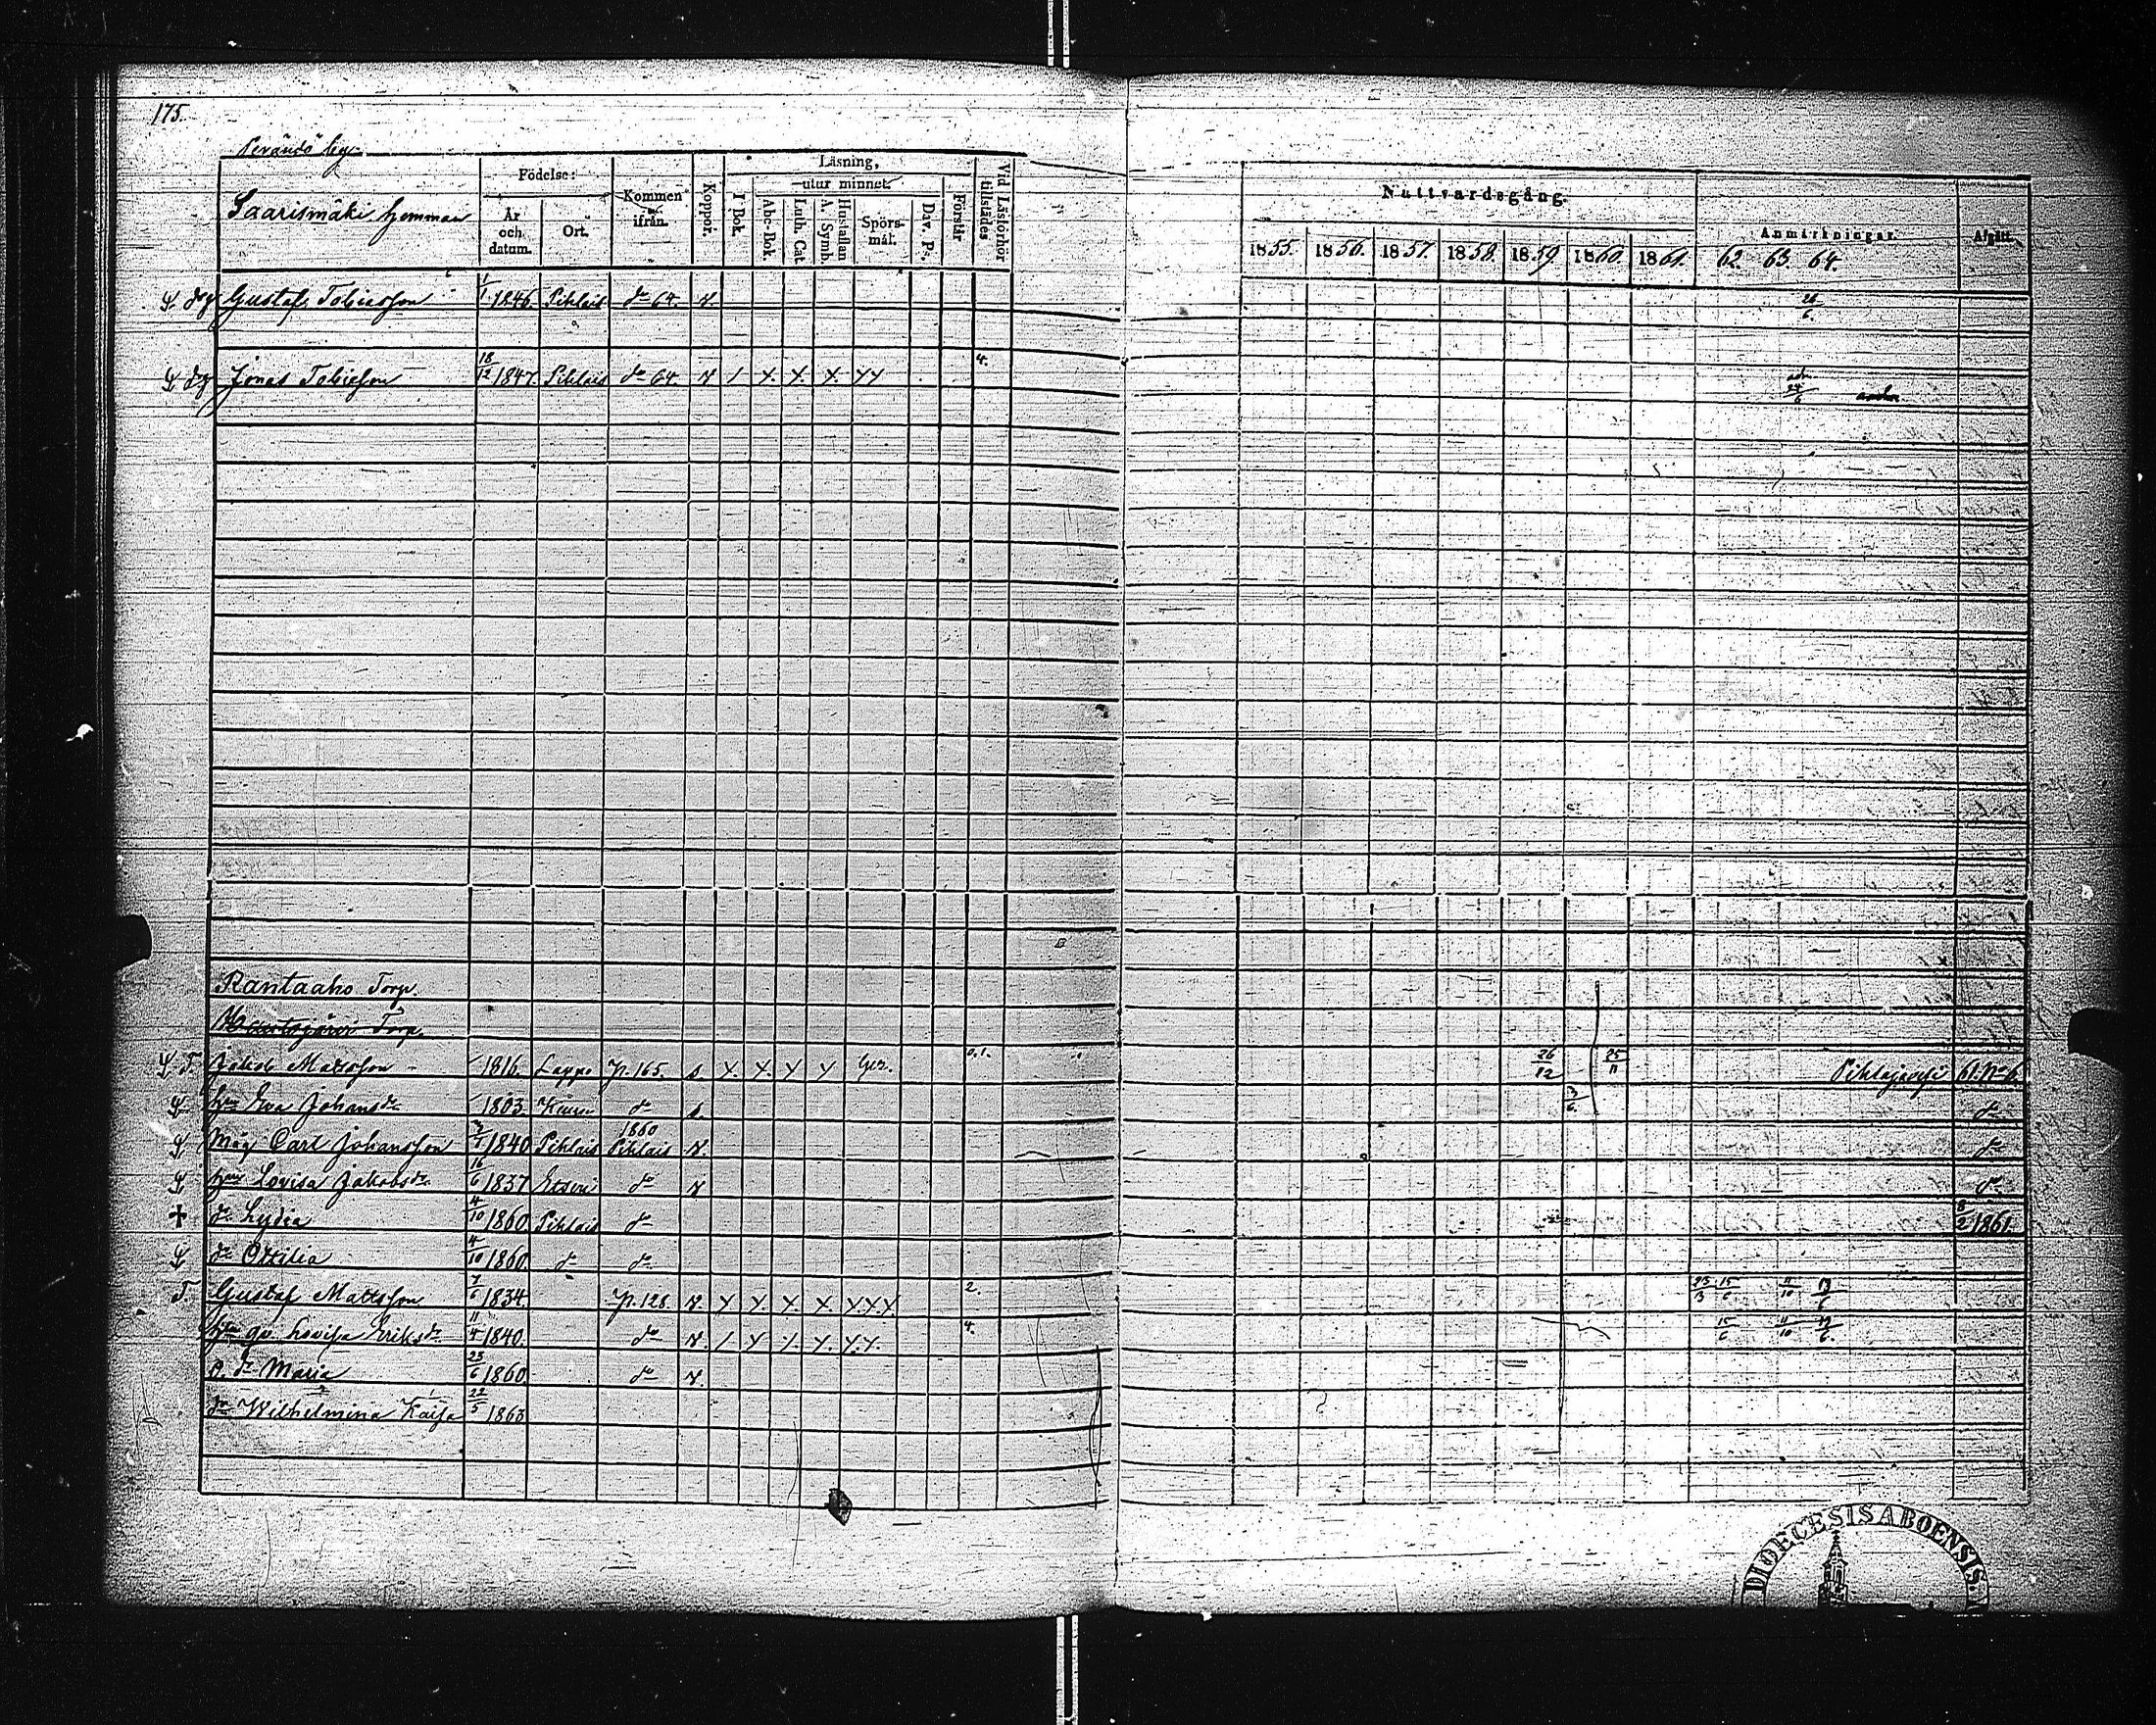 175.
Perändö by.
Saarismäki hemman
Födelse:
År och datum.
Ort.
Kommen ifrån.
Koppor.
Läsning,
utur minnet.
I Bok.
Abc-Bok.
Luth. Cat.
A. Symb.
Hustaflan
Spörsmål.
Dav. Ps.
Förstår
Vid Läsförhör tillstädes
Nattvardsgång.
1855. 1856. 1857. 1858. 1859 1860. 1861.
Anmärkningar.
62. 63. 64.
Afgått.
Gustaf Tobiasson 1/1 1846. Pihlais do 64. v. 26/6
Jonas Tobiasson 18/12 1847. Pihlais do 64 v / x. x. x. xx 4. 24/6
Rantaaho Torp.
Jakob Mattsson 1816. Lappo p. 165. s. x. x. x x 0.1. 26/12 25/11 Pihlajavesi 61. No 6.
hu Eva Johansdr 1803. do s. 3/6 do
Måg Carl Johansson 1840 Pihlais 1860 Pihlais v. do
hu Lovisa Jakobsdr 16/6 1837 Etseri do v do
dr Lydia 4/10 1860 Pihlais do 8/2 1861.
dr Ottilia 4/10 1860 do do
T Gustaf Mattsson 7/6 1834. p. 128. v. x x. x. x. xxx 2. 23/3 15/6 11/10 19/6
hu qv. Lovisa Eriksdr 11/4 1840. do v. / x /. x. x.x. 4. 15/6 11/10 19/6
dr Maria 23/6 1860 do v.
dr Wilhelmina Kaisa 22/5 1863
DIOECESIS ABOENSIS.